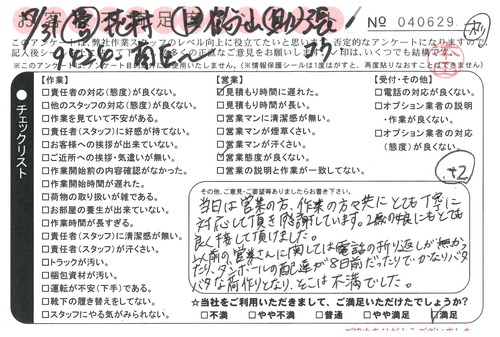 足
No 040629
このアンケートは、弊社作業スタッフのレベル向上に役立てたいと思います。否定的なアンケートになりますので
記入後シー
お願いします。印は、いくつでも結構です。
※このアンケート
※(情報保護シールは1度はがすと、再度貼りなおすことはできません)
チェックリスト
【作業】
□責任者の対応(態度)が良くない。
□他のスタッフの対応(態度)が良くない。
□作業を見ていて不安がある。
□責任者(スタッフ)に好感が持てない。
□お客様への挨拶が出来ていない。
□ご近所への挨拶・気遣いが無い。
□作業開始前の内容確認がなかった。
□作業開始時間が遅れた。
□荷物の取り扱いが雑である。
□お部屋の養生が出来ていない。
□作業時間が長すぎる。
□責任者(スタッフ)に清潔感が無い。
□責任者(スタッフ)が汗くさい。
□トラックが汚い。
□梱包資材が汚い。
□運転が不安(下手)である。
□靴下の履き替えをしてない。
□スタッフにやる気がみられない。
【営業】
□見積もり時間に遅れた。
□見積もり時間が長い。
□営業マンに清潔感が無い。
□営業マンが煙草くさい。
□営業マンが汗くさい。
□営業態度が良くない。
□営業の説明と作業が一致してない。
【受付・その他】
□電話の対応が良くない。
□オプション業者の説明
・作業が良くない。
□オプション業者の対応
(態度)が良くない。
+2
その他、ご意見・ご要望等ありましたらお書き下さい。
当日は営業の方、作業の方々共にとても丁寧に
対応して頂き感謝しています。2歳の娘にもとても
良く接して頂けました。
以前の営業さんに関しては電話の折り返しが無かっ
たり、ダンボールの配達が8日前だったりでかなりバタ
バタな荷作りとなり、そこは不満でした。
☆当社をご利用いただきまして、ご満足いただけたでしょうか?
□不満 □やや不満 □普通 □やや満足 □満足